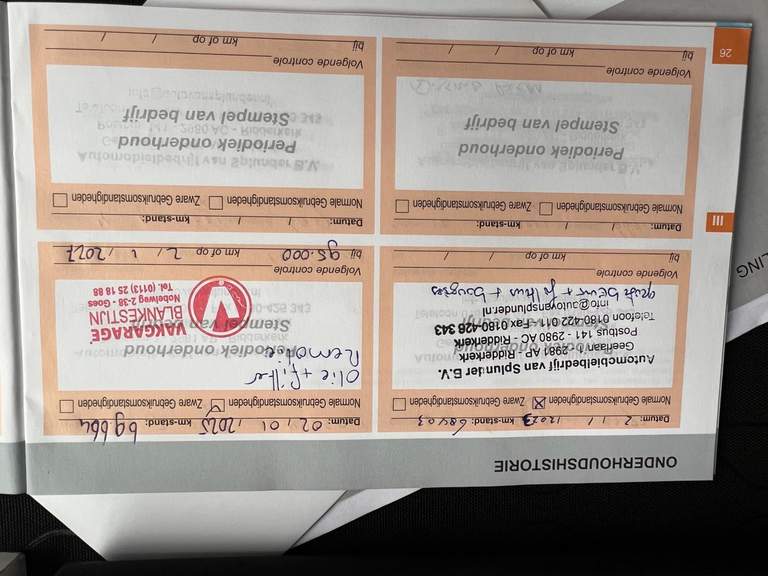 ONDERHOUDSHISTORIE
Datum: 2 / 1 / 2023 km-stand: 68403
Normale Gebruiksomstandigheden Zware Gebruiksomstandigheden
Automobielbedrijf van Splunder B.V.
Geerlaan 1 - 2981 AP - Ridderkerk
Postbus 141 - 2980 AC - Ridderkerk
Telefoon 0180-422 011 - Fax 0180-428 343
info@autovansplunder.nl
grote beurt + filters + bougies
Volgende controle
bij km of op / /
Datum: 02 / 01 / 2025 km-stand:
Normale Gebruiksomstandigheden Zware Gebruiksomstandigheden
Olie + filter
Remolie
Periodiek onderhoud
Stempel van
VAKGARAGE
BLANKESTIJN
Nobelweg 2-38 - Goes
Tel. (0113) 25 18 88
Volgende controle
bij 95.000 km of op 2 / 1 / 2027
III
Datum: / / km-stand:
Normale Gebruiksomstandigheden Zware Gebruiksomstandigheden
Periodiek onderhoud
Stempel van bedrijf
Volgende controle
bij km of op / /
Datum: / / km-stand:
Normale Gebruiksomstandigheden Zware Gebruiksomstandigheden
Periodiek onderhoud
Stempel van bedrijf
Volgende controle
bij km of op / /
26
LING